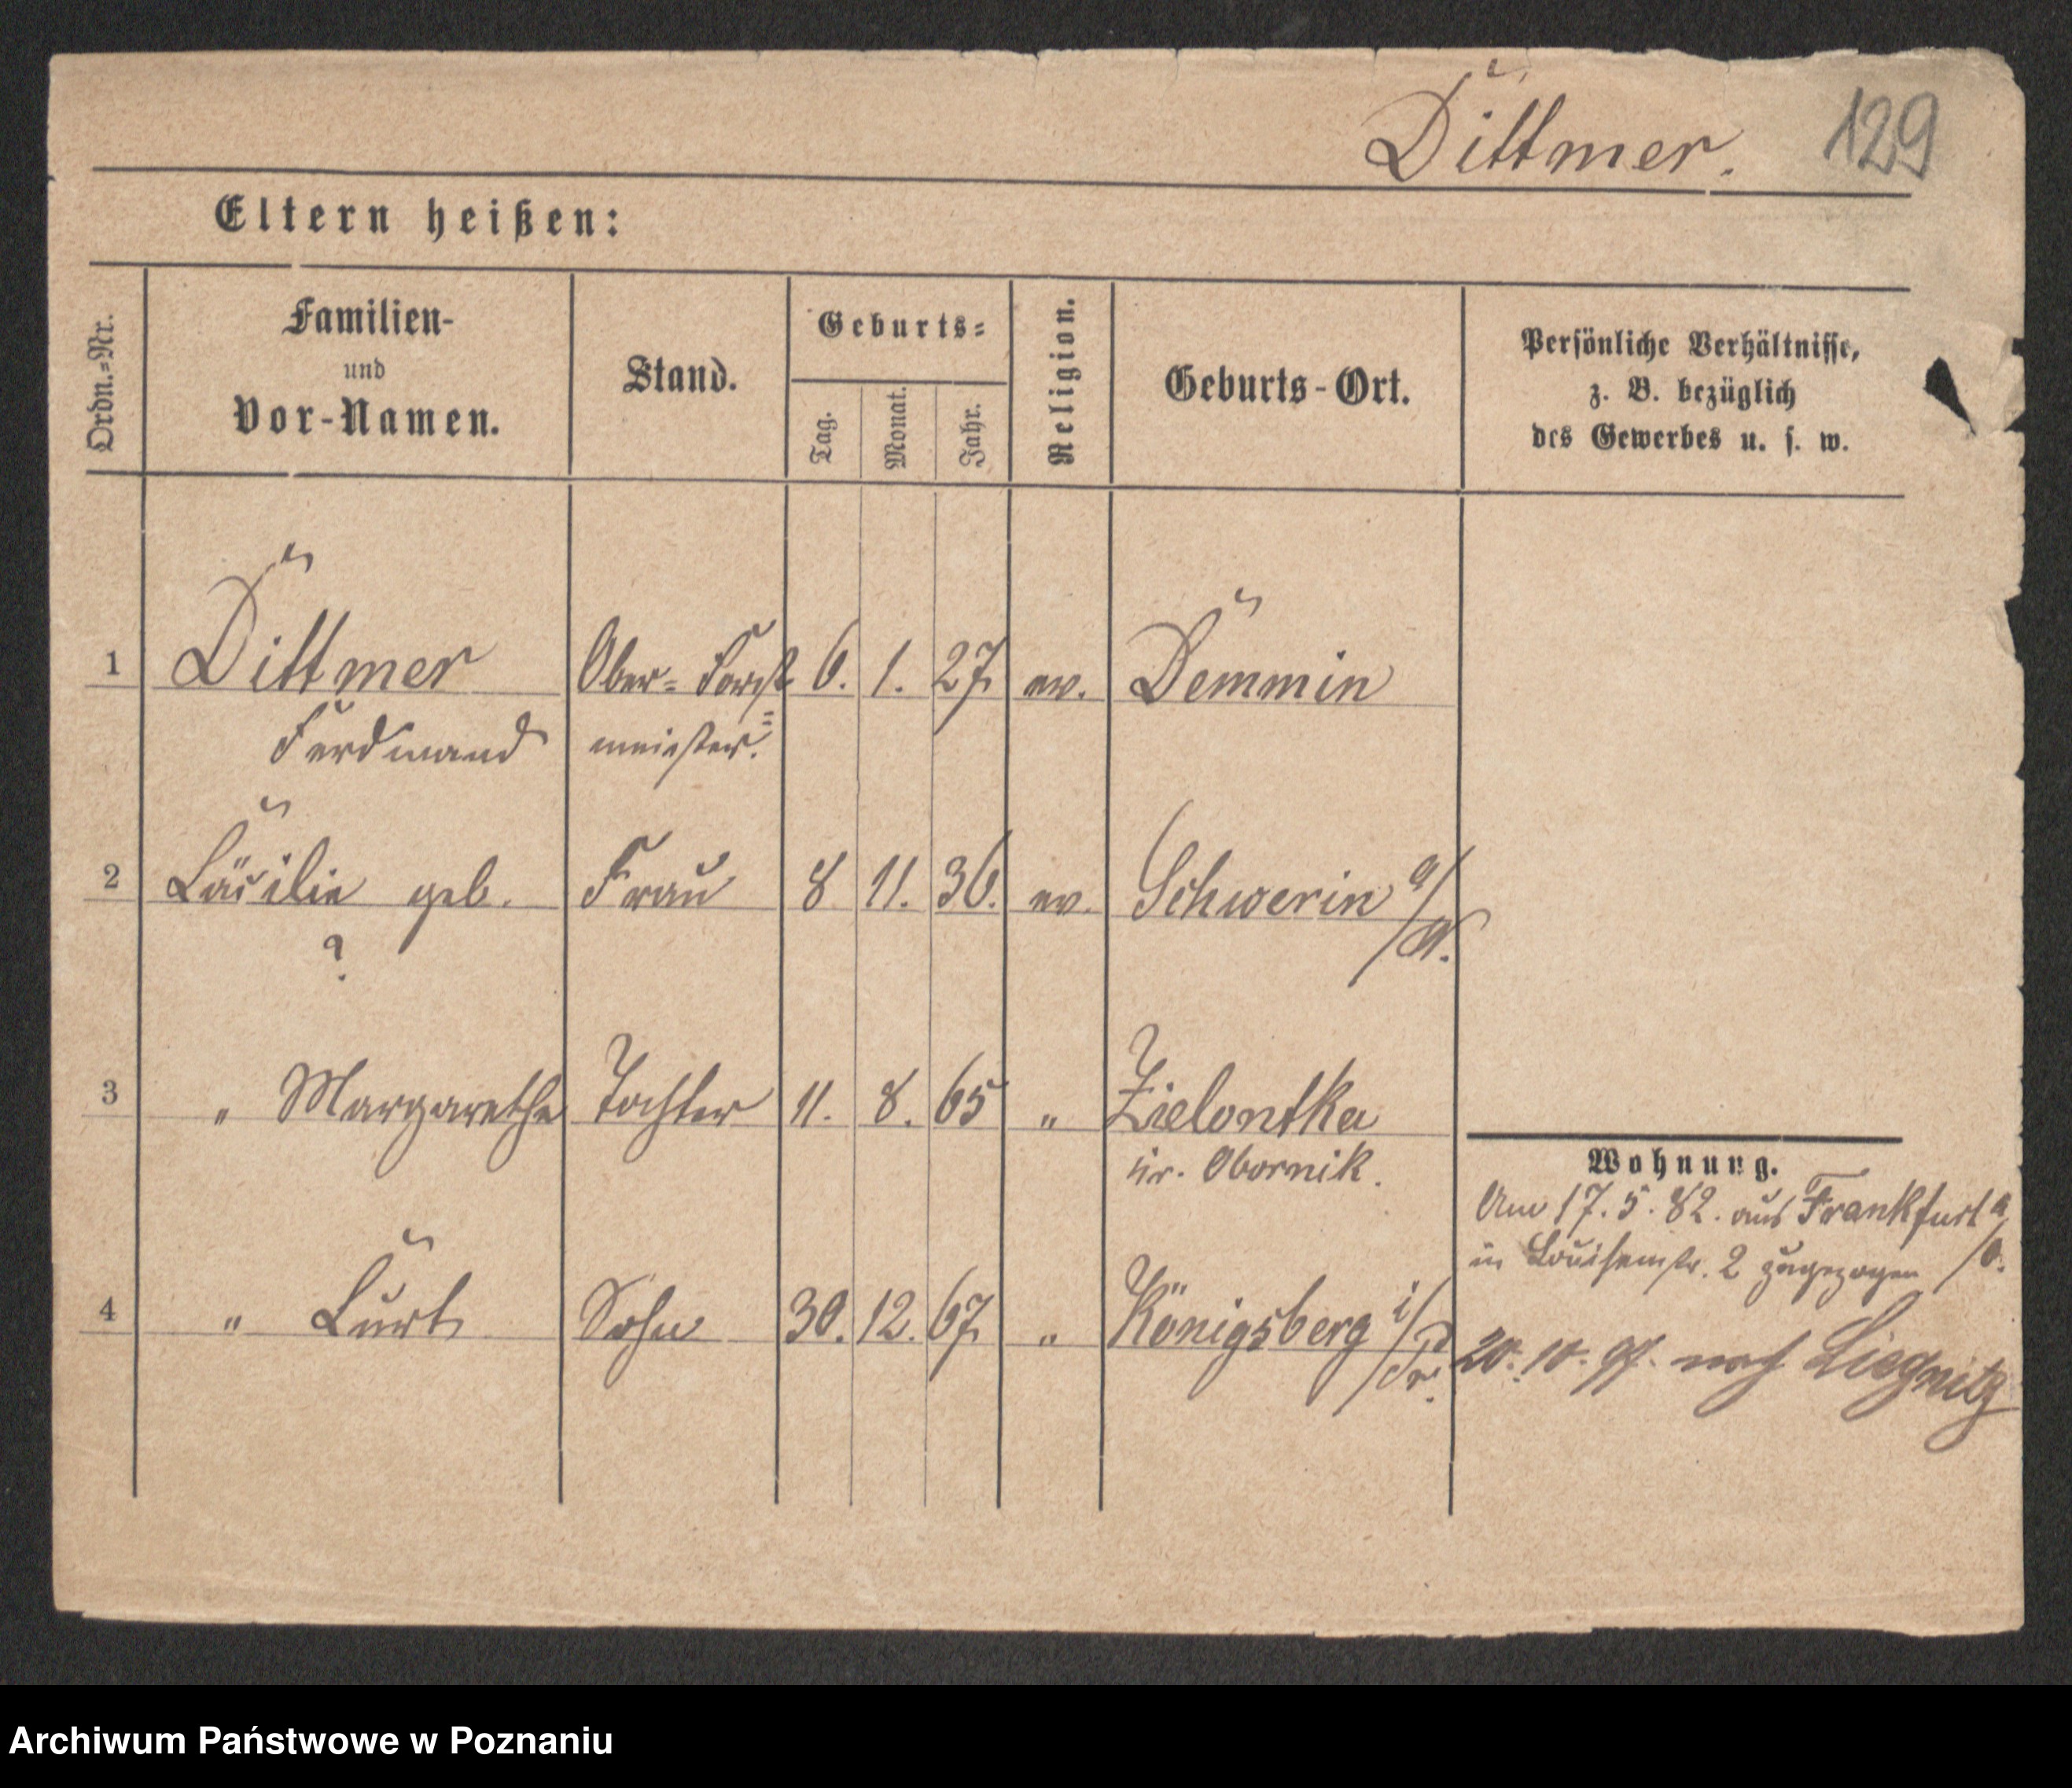 Dittmer.
129
Eltern heißen:
Ordn.=Nr.
Familien-
und
Vor-Namen.
Stand.
Geburts=
Tag.
Monat.
Jahr.
Religion.
Geburts-Ort.
Persönliche Verhältnisse,
z. B. bezüglich
des Gewerbes u. s. w.
1 Dittmer Ober=Forst= 6. 1. 27. ev. Demmin
Ferdinand meister.
2 Cäcilie geb. Frau 8 11. 36. ev. Schwerin a/W.
?
3 " Margarethe Tochter 11. 8. 65 " Zielontka
Kr. Obornik.
4 " Curt Sohn 30. 12. 67. " Königsberg i/Pr.
Wohnung.
Am 17. 5. 82. aus Frankfurt a/O.
in Louisenstr. 2 zugezogen
20. 10. nach Liegnitz
Archiwum Państwowe w Poznaniu